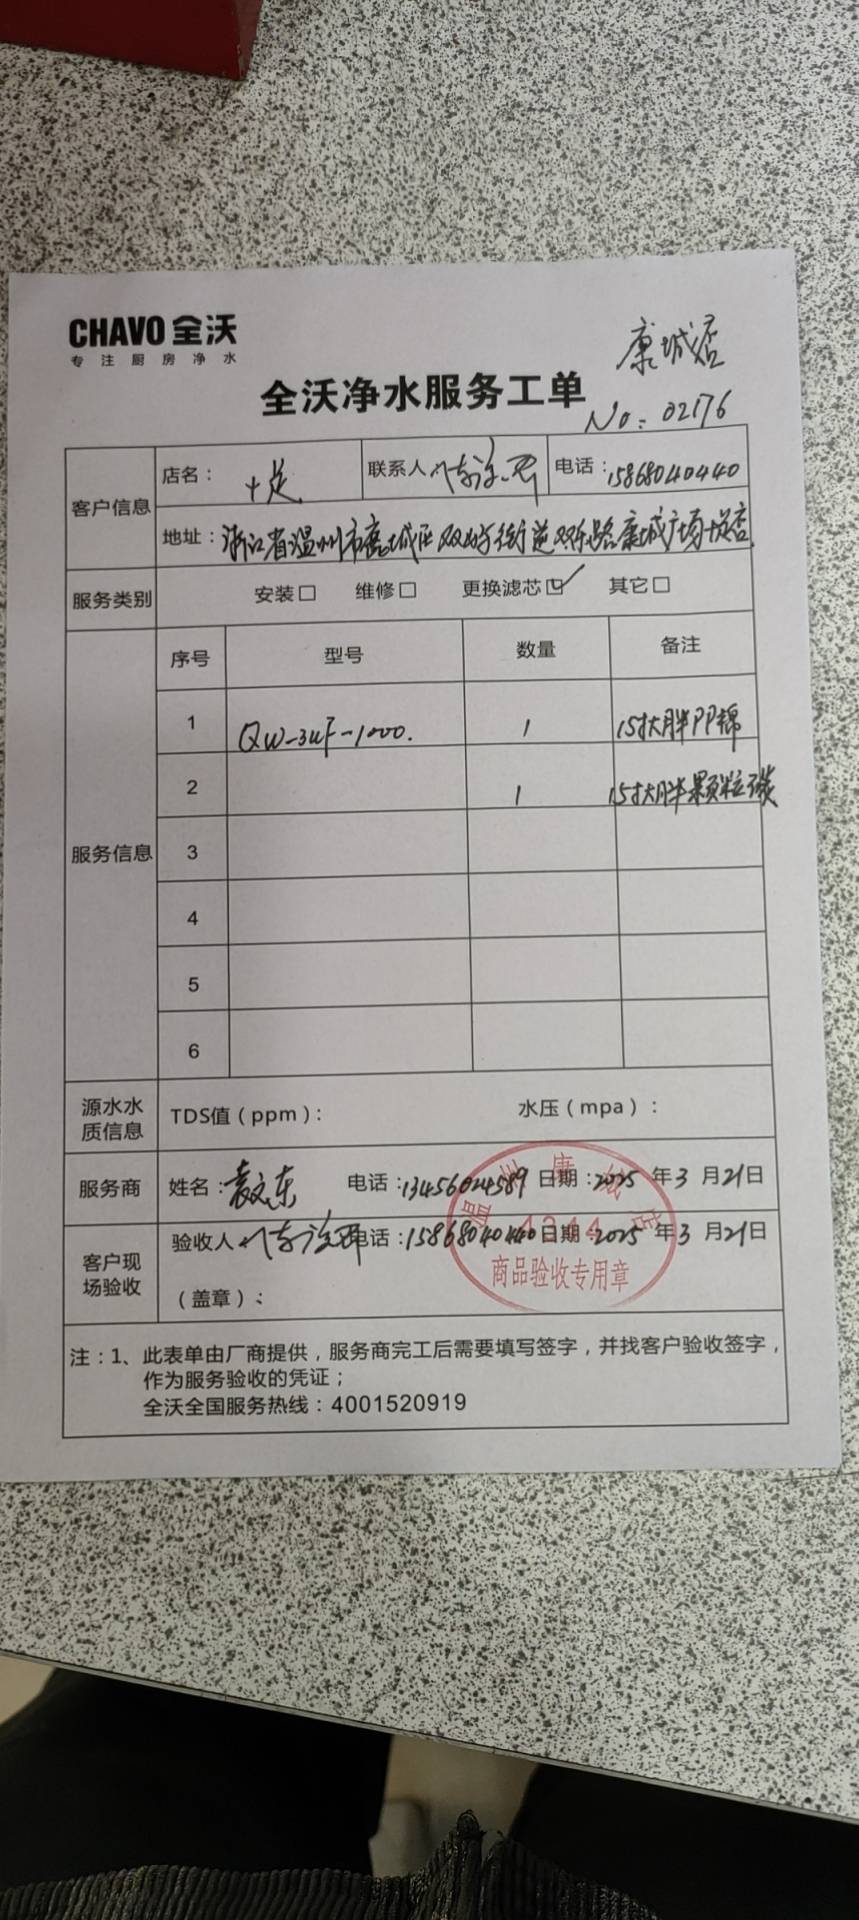 CHAVO 全沃
专注厨房净水
康城店
全沃净水服务工单
No: 02176
客户信息
店名： 十足
联系人
电话：15868040440
地址：浙江省温州市鹿城区双屿街道 康城广场十足店
服务类别
安装□ 维修□ 更换滤芯☑ 其它□
服务信息
序号 型号 数量 备注
1 QW-3UF-1000. 1 15寸大胖PP棉
2 1 15寸大胖颗粒碳
3
4
5
6
源水水质信息
TDS值（ppm）： 水压（mpa）：
服务商
姓名：袁文东 电话：13456024589 日期：2025 年3 月21日
客户现场验收
验收人 电话：15868040440 日期：2025 年3 月21日
（盖章）：
温州康城店
4344
商品验收专用章
注：1、此表单由厂商提供，服务商完工后需要填写签字，并找客户验收签字，
作为服务验收的凭证；
全沃全国服务热线：4001520919